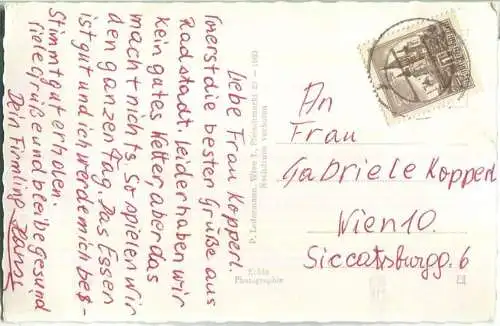 Liebe Frau Kopperl.
Innerst die besten Grüße aus
Radstadt. Leider haben wir
kein gutes Wetter, aber das
macht nichts, so spielen wir
den ganzen Tag. Das Essen
ist gut und ich werde mich be-
stimmt gut erholen.
Viele Grüße und bleibe gesund
Dein Firmling Hans
P. Ledermann, Wien I., Fleischmarkt
Nachdruck verboten
Photographie
An
Frau
Gabriele Kopperl
Wien 10.
Siccardsburgg. 6